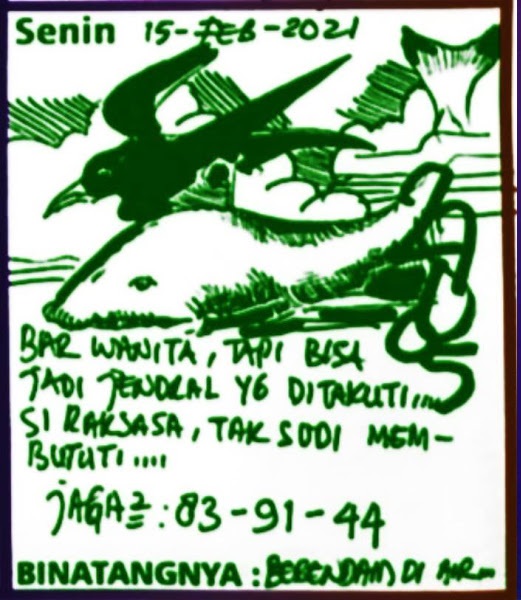 Senin 15-FEB-2021
BAR WANITA, TAPI BISA
JADI JENDRAL YG DITAKUTI....
SI RAKSASA, TAK SUDI MEM-
BUTUTI....
JAGA2 : 83-91-44
BINATANGNYA : BERENDAM DI AIR...